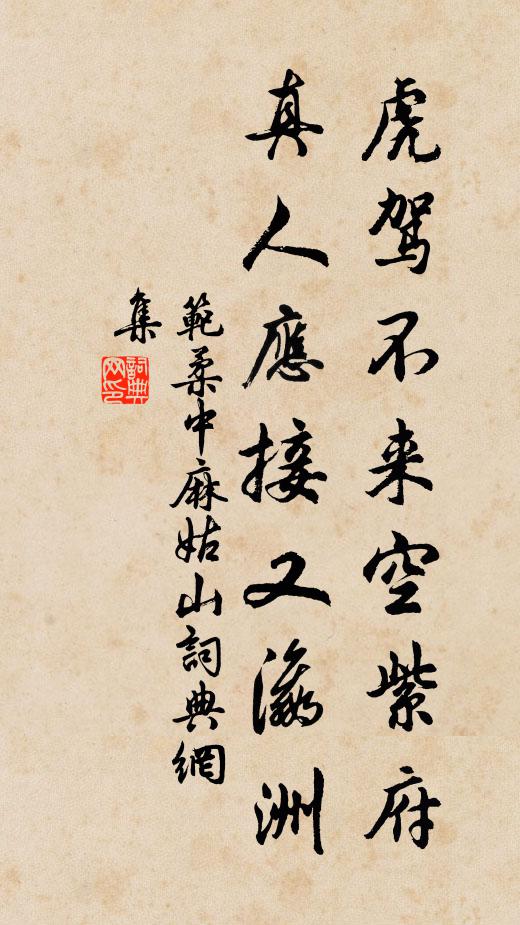 虎駕不来空紫府
真人應接又瀛洲
範柔中麻姑山詞典網
集
詞典網印